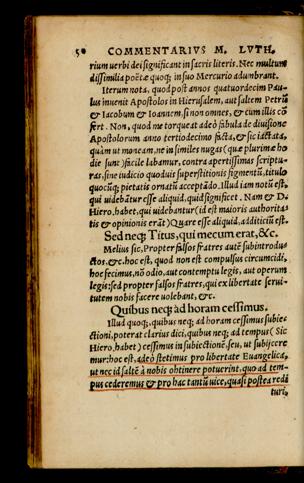 50 COMMENTARIVS M. LVTH.
rium uerbi dei significant in sacris literis. Nec multum
dissimilia poëtæ quoq; in suo Mercurio adumbrant.
Iterum nota, quod post annos quatuordecim Pau-
lus inuenit Apostolos in Hierusalem, aut saltem Petrū
& Iacobum & Ioannem, si non omnes, & cum illis cō
fert. Non, quod me torqueat adeò fabula de diuisione
Apostolorum anno tertiodecimo facta, & sic iactata,
quàm ut moneam, ne in similes nugas (quæ plurimæ ho
die sunt) facile labamur, contra apertissimas scriptu-
ras, sine iudicio quoduis superstitionis figmentū, titulo
quocūq; pietatis ornatū acceptādo. Illud iam notū est,
qui uidebātur esse aliquid, quid significet. Nam & D.
Hiero. habet, qui uidebantur (id est maioris authorita
tis & opinionis erāt) Quare esse aliquid, additiciū est.
Sed neq; Titus, qui mecum erat, &c.
Melius sic, Propter falsos fratres autē subintrodu-
ctos, &c. hoc est, quod non est compulsus circumcidi,
hoc fecimus, nō odio, aut contemptu legis, aut operum
legis: sed propter falsos fratres, qui ex libertate serui-
tutem nobis facere uolebant, &c.
Quibus neq; ad horam cessimus.
Illud quoq;, quibus neq; ad horam cessimus subie-
ctioni, poterat clarius dici, quibus neq; ad tempus (Sic
Hiero. habet) cessimus in subiectionē. seu, ut subijcere
mur: hoc est, adeò stetimus pro libertate Euangelica,
ut nec id saltē à nobis obtinere potuerint, quo ad tem-
pus cederemus & pro hac tantū uice, quasi postea redi
turi,